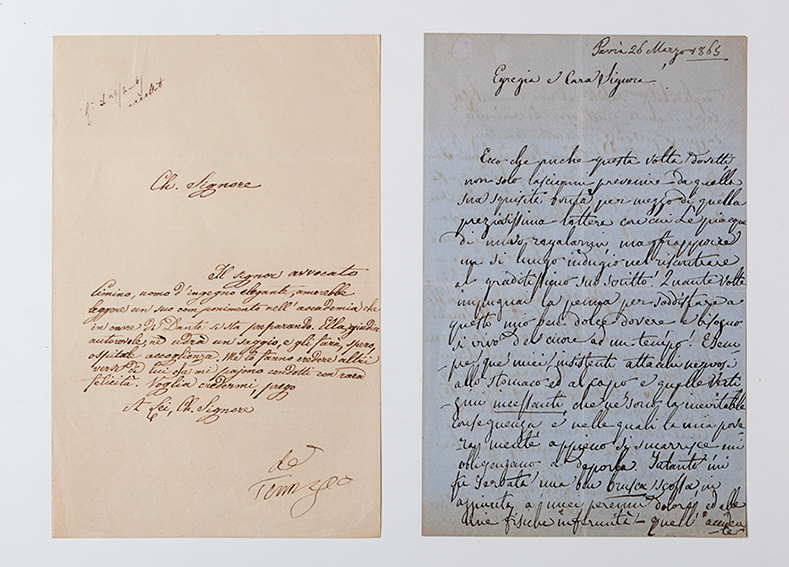 Ch. Signore
Il signor avvocato
Cimino, uomo d'ingegno elegante, amerebbe
leggere un suo componimento nell'accademia che
in onore di Dante si sta preparando. Ella, giudice
autorevole, ne udrà un saggio, e gli farà, spero,
ospitale accoglienza. Me lo fanno credere altri
versi di lui che mi pajono condotti con rara
felicità. Voglia credermi, prego
A Lei, Ch. Signore
Pavia 26 Marzo 1865
Egregia e Cara Signora
Ecco che anche questa volta dovetti
non solo lasciarmi prevenire da quella
sua squisita bontà per mezzo di quella
preziosissima lettera con cui Le piacque
di nuovo regalarmi ma frapporre
un sì lungo indugio nel riscontrare
al graditissimo suo scritto! Quante volte
impugnai la penna per soddisfare a
questo mio ben dolce dovere e bisogno
sì vivo del cuore ad un tempo! E sem
pre que' miei insistenti attacchi nervosi
allo stomaco ed al capo e quelle verti
gini incessanti, che ne sono la inevitabile
conseguenza e nelle quali la mia pove
ra mente appieno si smarrisce mi
obbligarono a deporla. Intanto mi
fu serbata una ben brusca scossa, in
aggiunta a' miei perenni dolori ed alle
mie fisiche infermità - quell'acciden
te